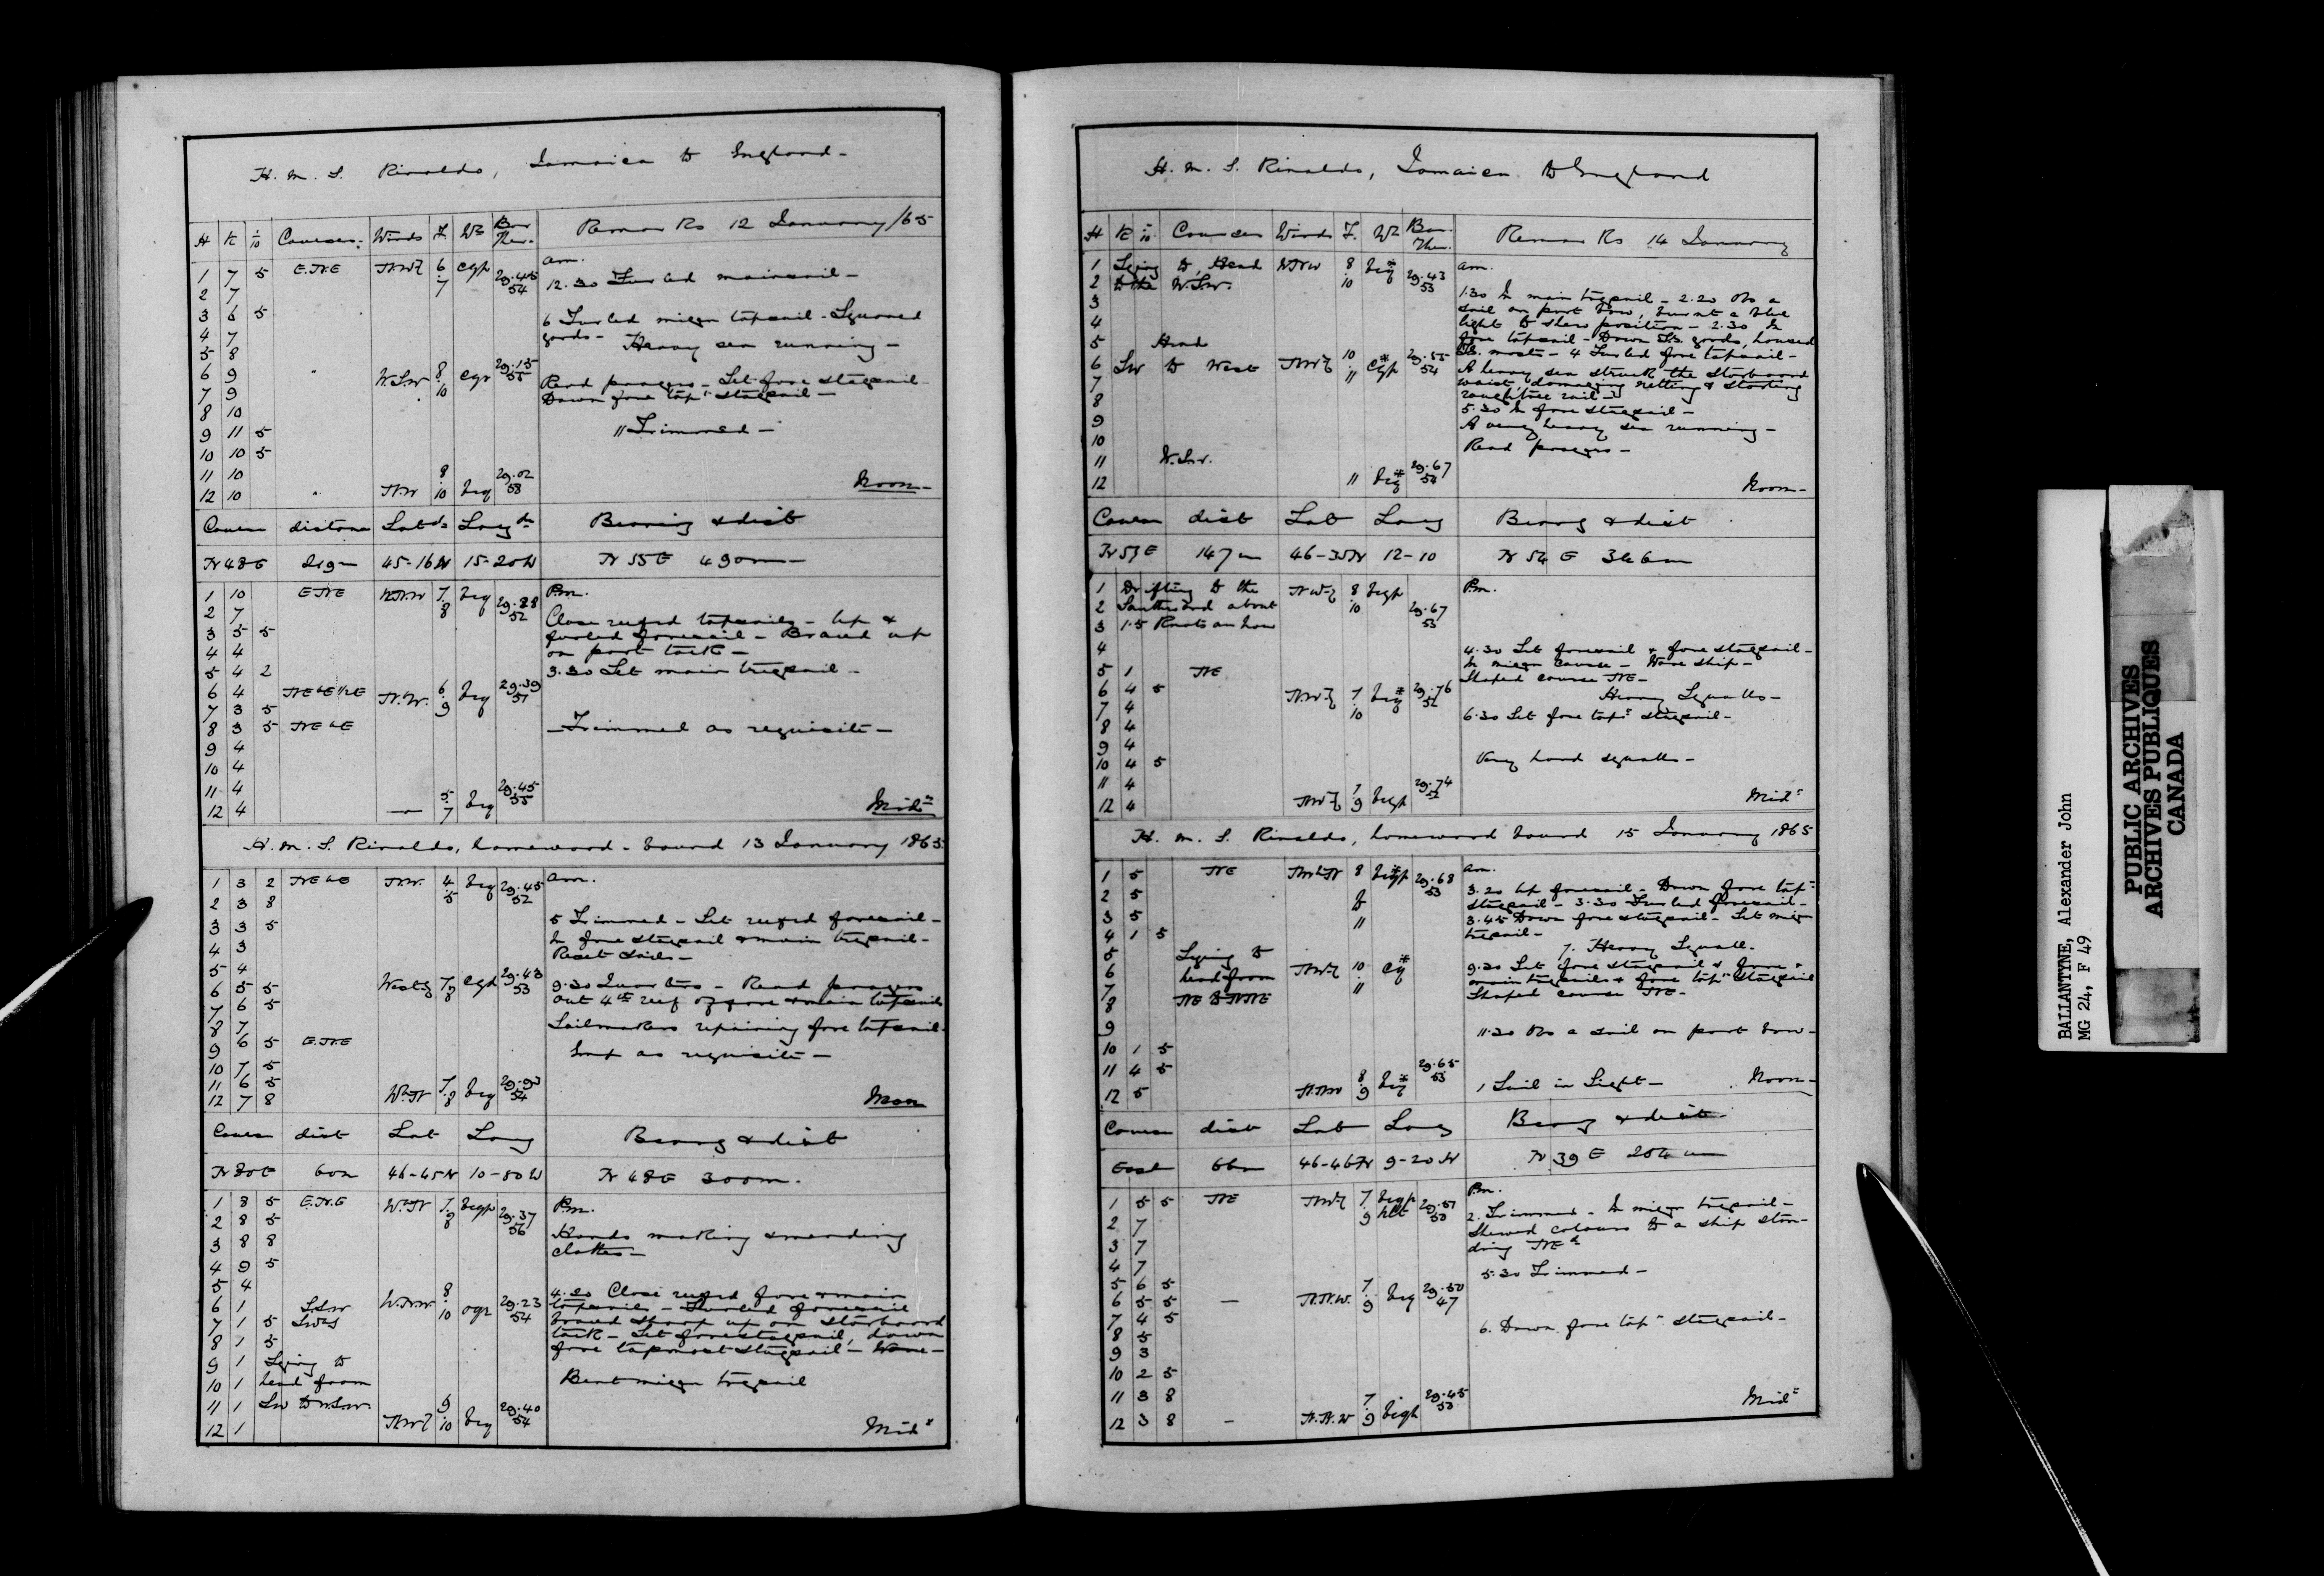 H. M. S. Rinaldo, Jamaica to England -
H K 1/10 Courses: Winds F. Wr Bar Ther. Remarks 12 January /65
am.
1 7 5 E.NE 6 7 29.45 54 12.30 Furled mainsail -
2 7
3 6 5 6 Furled mizen topsail - Squared
4 7 yards - Heavy sea running -
5 8
6 9 W.SW 8 10 29.15 55 Read prayers - Set fore staysail
7 9 Down fore topst staysail -
8 10
9 11 5 11 Trimmed -
10 10 5
11 10
12 10 NW 8 10 beq 29.02 58 Noon -
Course distance Lat Long Bearing & dist
N 48 E 45-16 N 15-20 W N 55 E 490m -
Pm.
1 10 E NE 7 8 beq 52
2 7 Close reefed topsails - Up &
3 5 5 furled foresail - Braced up
4 4 on port tack -
5 4 2 3.30 Set main trysail -
6 4 N.W. 6 9 beq 29.39 51
7 3 5
8 3 5 - Trimmed as requisite -
9 4
10 4
11 4
12 4 - 5 7 beq 29.45 55 Midt
H. M. S. Rinaldo, homeward - bound 13 January 1865
am.
1 3 2 N.W. 4 5 beq 29.45 52
2 3 8
3 3 5 5 Trimmed - Set reefed foresail -
4 3 In fore staysail & main trysail -
5 4 Reset sails -
6 5 5 7 8 29.43 53 9.30 Quarters - Read prayers
7 6 5 out 4th reef of fore & main topsails
8 7 Sailmakers repairing fore topsail.
9 6 5 E.NE
10 7 5 as requisite -
11 6 5
12 7 8 WbN 7 8 beq 54 Noon
Course dist Lat Long Bearing & dist
N 80 E 60m 46-45 N 10-50 W N 48 E 300m.
Pm.
1 8 5 E.N.E WbN 7 8 beqp 29.37 56
2 8 5 Hands making & mending
3 8 8 clothes -
4 9 5
5 4 4.20 Close reefed fore & main
6 1 S.SW W.NW. 8 10 oqr 29.23 54 topsails - Furled foresail
7 1 5 braced sharp up on starboard
8 1 5 tack - Set forestaysail, down
9 1 Lying to fore topmast staysail - Wore -
10 1 head from Bent mizen trysail
11 1 SW to W.SW
12 1 9 10 beq 29.40 54 Midt
H. M. S. Rinaldo, Jamaica to England
H K 1/10 Courses Winds F. Wr Bar. Ther. Remarks 14 January
am.
1 Lying to, Head WNW 8 10 beq 29.43 53
2 to the W.SW. 1.30 In main trysail - 2.20 Obs a
3 sail on port bow, burnt a blue
4 light to shew position - 2.30 In
5 Head fore topsail - Down T.G. yards, housed
6 SW to West 10 11 29.55 54 T.G. masts - 4 Furled fore topsail -
7 A heavy sea struck the starboard
8 waist, damaging netting & starting
9 roughtree rail -
10 5.30 In fore staysail -
11 W.SW. A very heavy sea running -
12 11 beq 29.67 54 Read prayers -
Noon -
Course dist Lat Long Bearg & dist
N 53 E 147m 46-35 N 12-10 N 54 E 346m
Pm.
1 Drifting to the 8 10 beqp 29.67 53
2 Southward about
3 1.5 Knots an hour
4 4.30 Set foresail & fore staysail -
5 1 NE In mizen course - Wore ship -
6 4 5 7 10 beq 29.76 52 Shaped course NE -
7 4 Heavy Squalls -
8 4 6.30 Set fore topst staysail -
9 4
10 4 5 Very hard squalls -
11 4
12 4 7 9 beqp 29.74 52 Midt
H. M. S. Rinaldo, homeward bound 15 January 1865
am.
1 5 NE NWbN 8 to 11 beqp 29.68 53
2 5 3.20 Up foresail - Down fore topst
3 5 staysail - 3.30 Furled foresail -
4 1 5 3.45 Down fore staysail - Set mizn
5 Lying to trysail -
6 head from 10 11 cq 7. Heavy Squall.
7 NE to NNE 9.30 Set fore staysail & fore &
8 main trysails & fore topst staysail
9 Shaped course NE -
10 1 5 11.30 Obs a sail on port bow -
11 4 5
12 5 N.NW 8 9 beq 29.65 53 1 Sail in Sight - Noon -
Course dist Lat Long Bearg & dist
East 66m 46-46 N 9-20 W N 39 E 254m
Pm.
1 5 5 NE 7 9 beqp 29.57 53 2. Trimmed - In mizen trysail -
2 7 Shewed colours to a ship stan-
3 7 ding NEd
4 7
5 6 5 5.30 Trimmed -
6 5 5 - N.N.W. 7 9 beq 29.50 47
7 4 5 6. Down fore topst staysail -
8 5
9 3
10 2 5
11 3 8
12 3 8 - N.N.W 7 9 29.45 53 Midt
BALLANTYNE, Alexander John
MG 24, F 49
PUBLIC ARCHIVES
ARCHIVES PUBLIQUES
CANADA